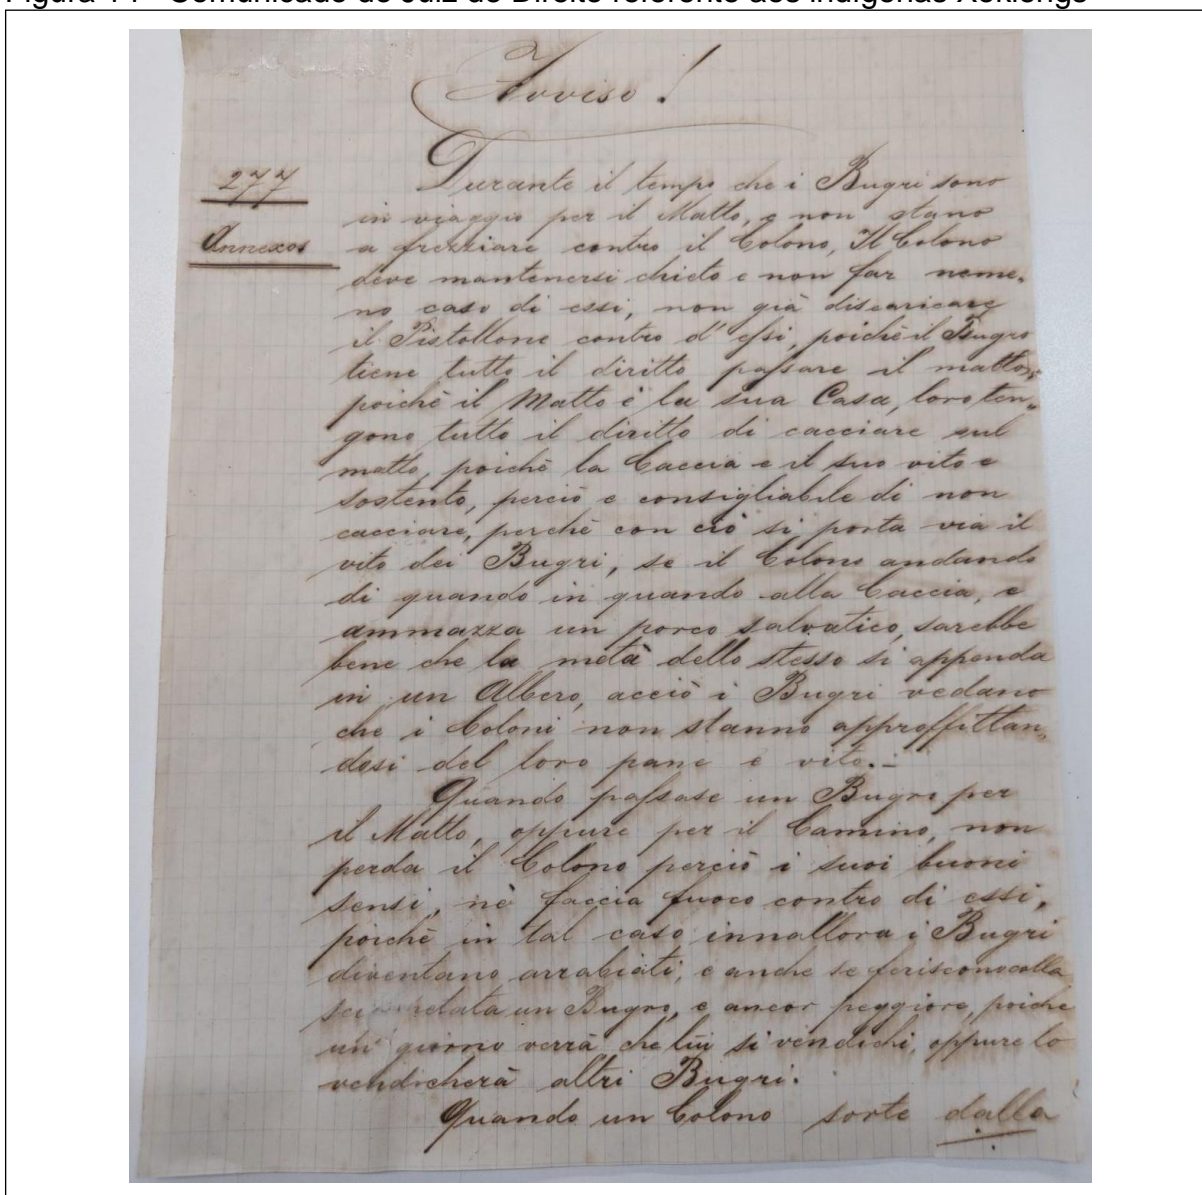 Figura 14 - Comunicado do Juiz de Direito referente aos indígenas Xoklengs
Avviso!
277
Annexos
Durante il tempo che i Bugri sono
in viaggio per il Matto, e non stano
a frezziare contro il Colono, Il Colono
deve mantenersi chieto e non far neme-
no caso di essi, non già discaricare
il Pistollone contro d'essi, poichè il Bugro
tiene tutto il diritto passare il matto,
poichè il Matto è la sua Casa, loro ten-
gono tutto il diritto di cacciare sul
matto, poichè la Caccia e il suo vito e
sostento, perciò e consigliabile di non
cacciare, perchè con ciò si porta via il
vito dei Bugri, se il Colono andando
di quando in quando alla Caccia, e
ammazza un porco salvatico, sarebbe
bene che la metà dello stesso si appenda
in un Albero, acciò i Bugri vedano
che i Coloni non stanno approffittan-
dosi del loro pane e vito.-
Quando passase un Bugro per
il Matto, oppure per il Camino, non
perda il Colono perciò i suoi buoni
sensi, nè faccia fuoco contro di essi,
poichè in tal caso innallora i Bugri
diventano arrabiati, e anche se feriscono colla
un Bugro, e ancor peggiore, poiche
un giorno verrà che lui si vendichi, oppure lo
vendicherà altri Bugri.
Quando un Colono sorte dalla